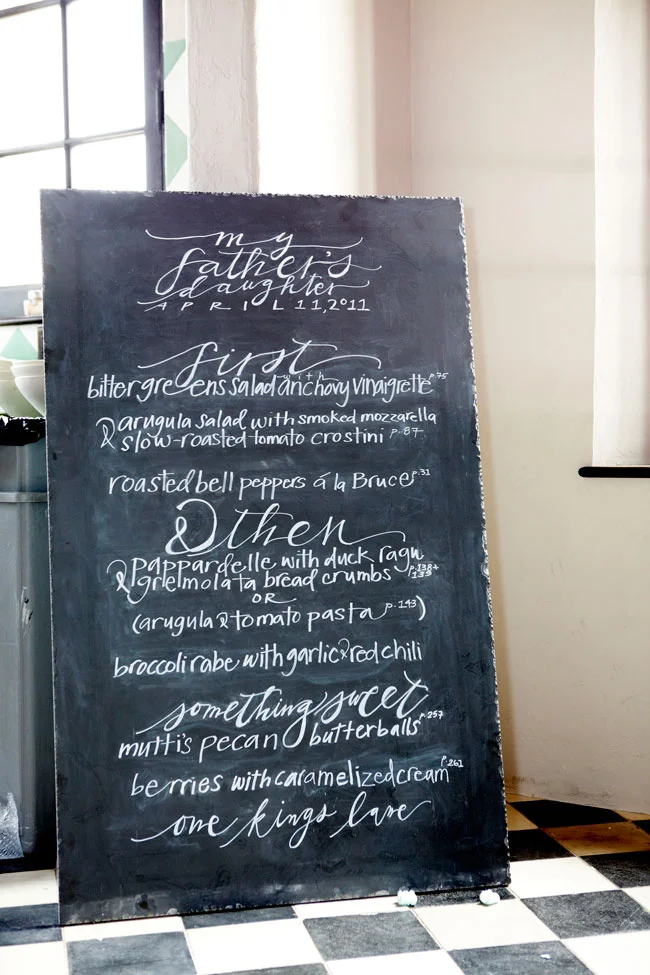 my
father's
daughter
APRIL 11, 2011
first
bitter greens salad with anchovy vinaigrette p.75
& arugula salad with smoked mozzarella
slow-roasted tomato crostini p.87
roasted bell peppers á la Bruce p.31
& then
pappardelle with duck ragu
& gremolata bread crumbs p.138+139
OR
(arugula & tomato pasta p.143)
broccoli rabe with garlic & red chili
something sweet
mutti's pecan butterballs p.257
berries with caramelized cream p.261
one kings lane